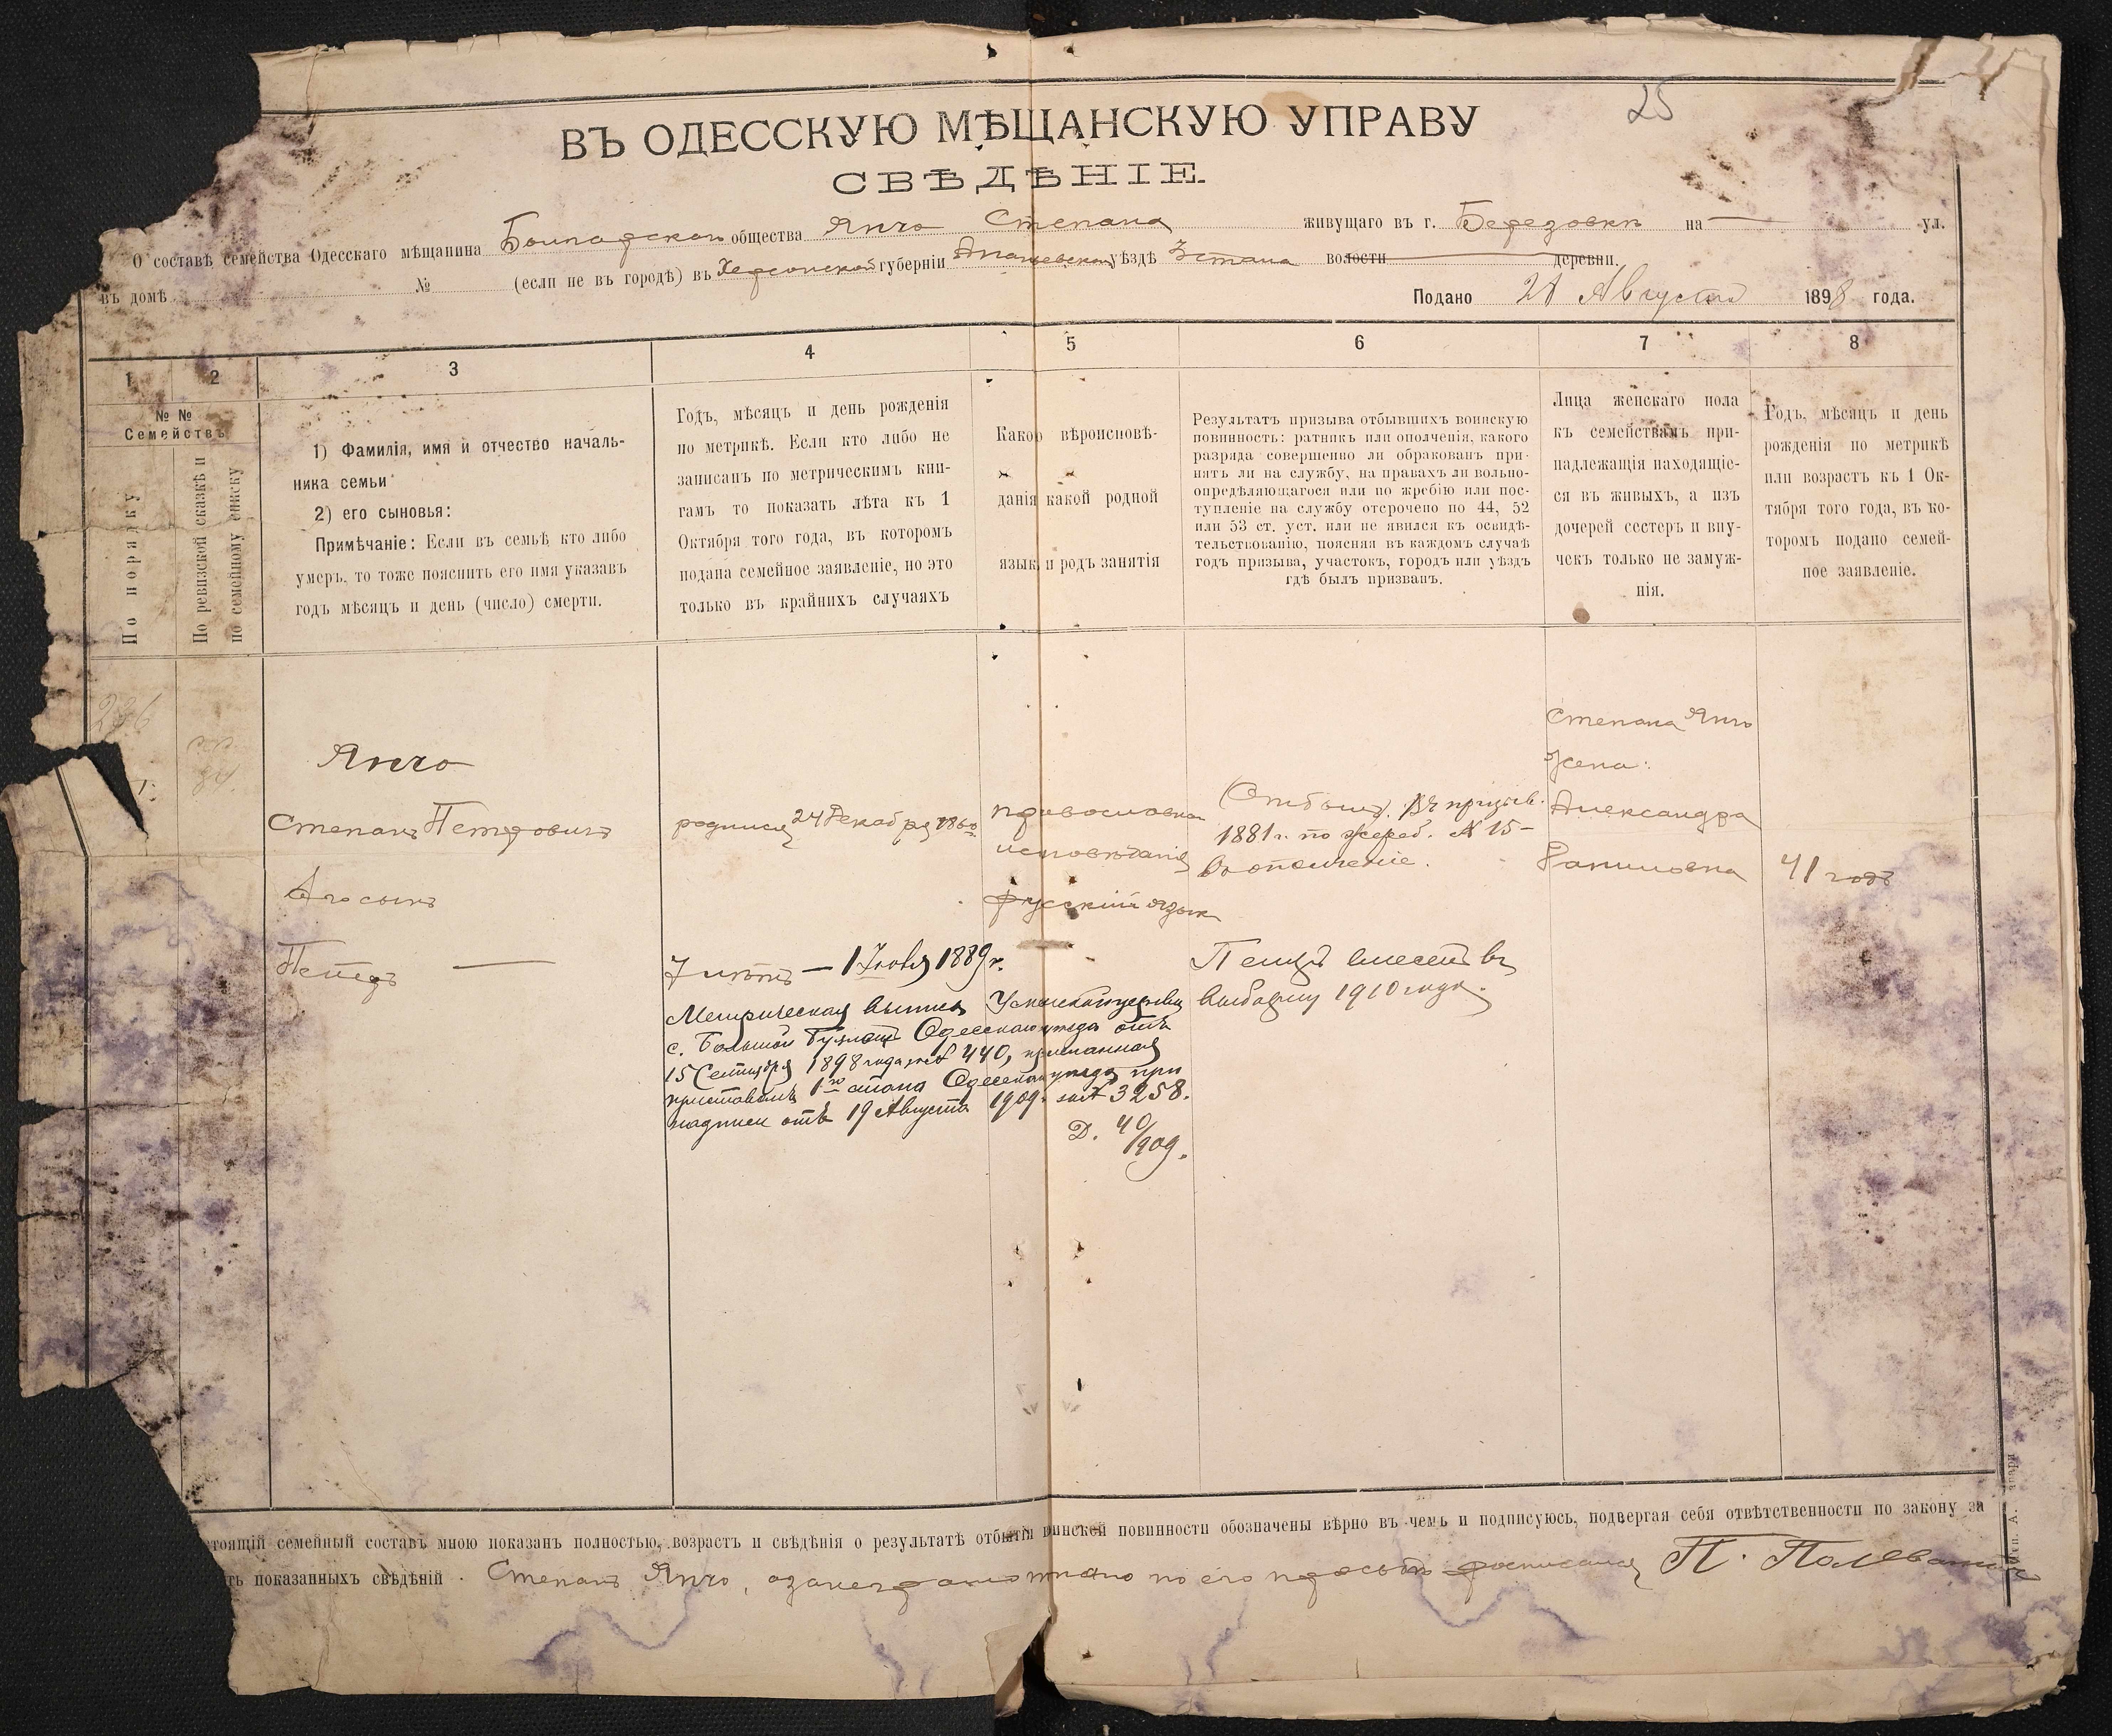 25
ВЪ ОДЕССКУЮ МѢЩАНСКУЮ УПРАВУ
СВѢДѢНІЕ
О составѣ семейства Одесскаго мѣщанина общества Янчо Степана живущаго въ г. Березовкѣ на ул.
въ домѣ № (если не въ городѣ) въ Херсонской губерніи Ананьевскомъ уѣздѣ 3 стана волости деревни.
Подано Августа 1898 года.
1 2 3 4 5 6 7 8
№ №
Семействъ
По порядку
По ревизской сказкѣ и
по семейному списку
1) Фамилія, имя и отчество началь-
ника семьи
2) его сыновья:
Примѣчаніе: Если въ семьѣ кто либо
умеръ, то тоже пояснить его имя указавъ
годъ мѣсяцъ и день (число) смерти.
Годъ, мѣсяцъ и день рожденія
по метрикѣ. Если кто либо не
записанъ по метрическимъ кни-
гамъ то показать лѣта къ 1
Октября того года, въ которомъ
подана семейное заявленіе, но это
только въ крайнихъ случаяхъ
Какого вѣроисповѣ-
данія какой родной
языкъ и родъ занятія
Результатъ призыва отбывшихъ воинскую
повинность: ратникъ или ополченія, какого
разряда совершенно ли обракованъ при-
нятъ ли на службу, на правахъ ли вольно-
опредѣляющагося или по жребію или пос-
тупленіе на службу отсрочено по 44, 52
или 53 ст. уст. или не явился къ освидѣ-
тельствованію, поясняя въ каждомъ случаѣ
годъ призыва, участокъ, городъ или уѣздъ
гдѣ былъ призванъ.
Лица женскаго пола
къ семействамъ при-
надлежащія находящіе-
ся въ живыхъ, а изъ
дочерей сестеръ и вну-
чекъ только не замуж-
нія.
Годъ, мѣсяцъ и день
рожденія по метрикѣ
или возрастъ къ 1 Ок-
тября того года, въ ко-
торомъ подано семей-
ное заявленіе.
84.
Янчо
Степанъ Петровичъ
Его сынъ
Петръ —
родился 24 Декабря 1860
7 лѣтъ — 1 Іюля 1889 г.
Метрическая выпись Успенской церкви
с. Большой Буялыкъ Одесскаго уѣзда отъ
15 Сентября 1898 года за № 440, присланная
приставомъ 1го стана Одесскаго уѣзда при
надписи отъ 19 Августа 1909 г. за № 3258.
Д. 40/909.
православна
исповѣданія
русскій язык
(Отбылъ). Въ призыв.
1881 г. по жереб. № 15 –
въ ополченіе.
Петръ внесенъ въ
выборку 1910 года.
Степана Янчо
Жена:
Александра
Даниловна
41 годъ
стоящій семейный составъ мною показанъ полностью, возрастъ и свѣдѣнія о результатѣ отбытія воинской повинности обозначены вѣрно въ чемъ и подписуюсь, подвергая себя отвѣтственности по закону за
ть показанныхъ свѣдѣній. Степанъ Янчо, а за неграмотнаго по его просьбѣ росписался П.